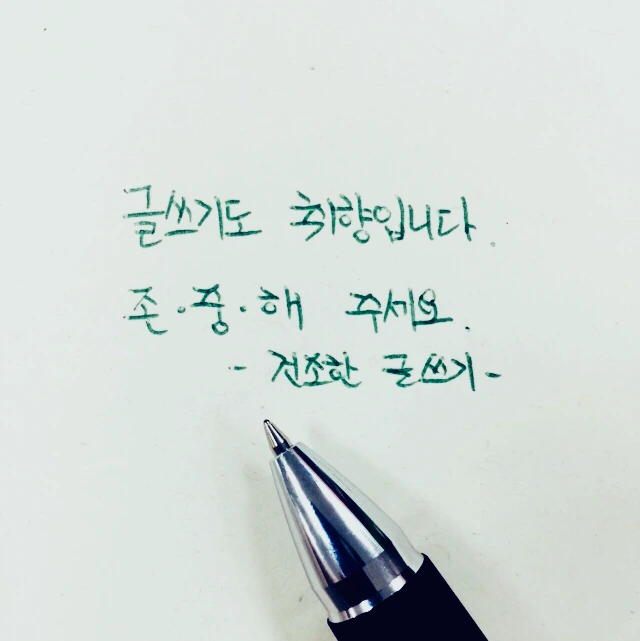 글쓰기도 취향입니다.
존·중·해 주세요.
- 건조한 글쓰기 -